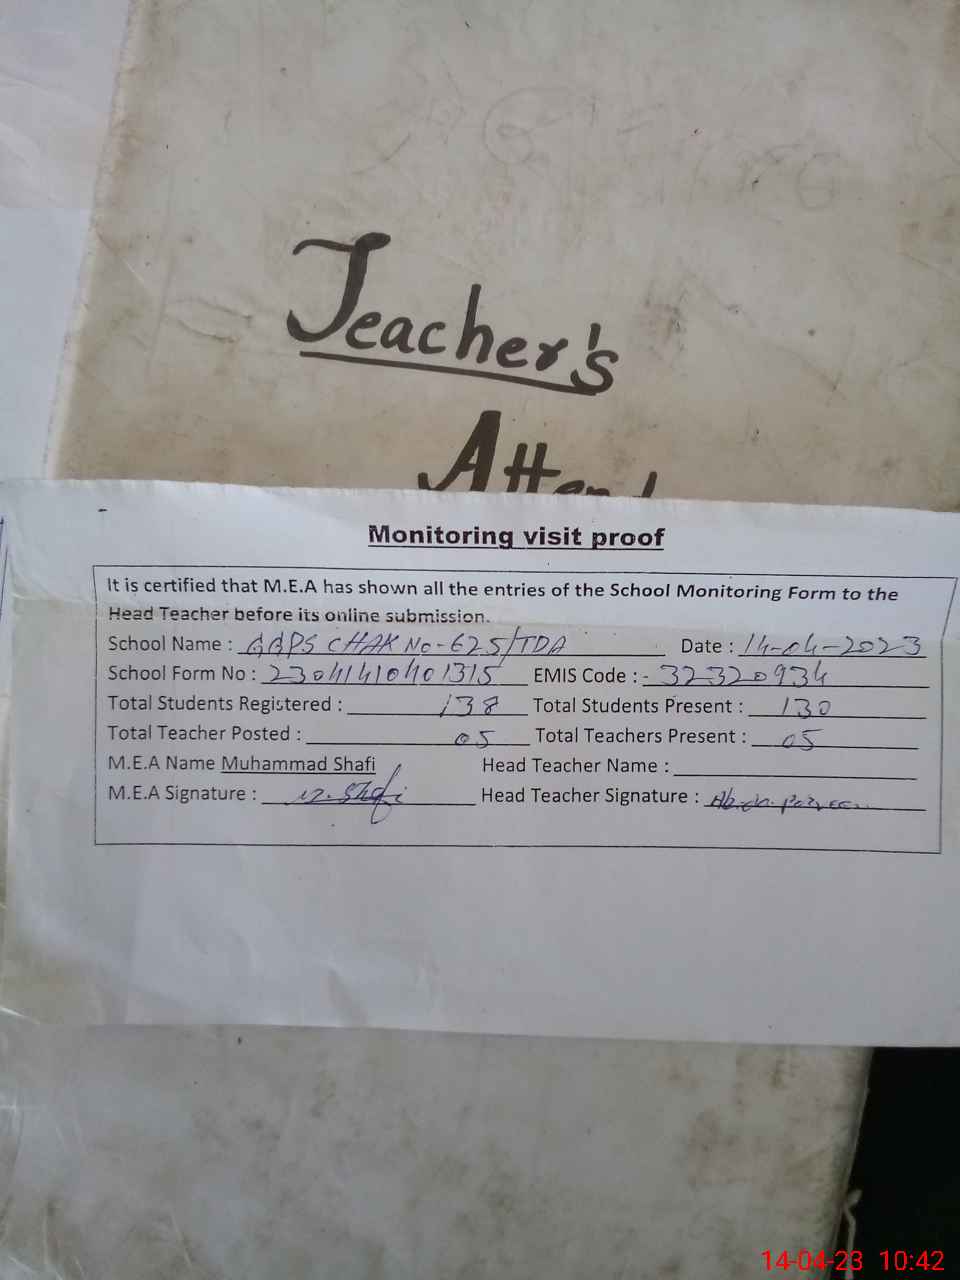 Teacher's
Atten
Monitoring visit proof
It is certified that M.E.A has shown all the entries of the School Monitoring Form to the
Head Teacher before its online submission.
School Name : GGPS CHAK No-625/TDA Date : 14-04-2023
School Form No : 23041410401315 EMIS Code : - 32320934
Total Students Registered : 138 Total Students Present : 130
Total Teacher Posted : 05 Total Teachers Present : 05
M.E.A Name Muhammad Shafi Head Teacher Name :
M.E.A Signature : M. Shafi Head Teacher Signature : Parveen
14-04-23 10:42